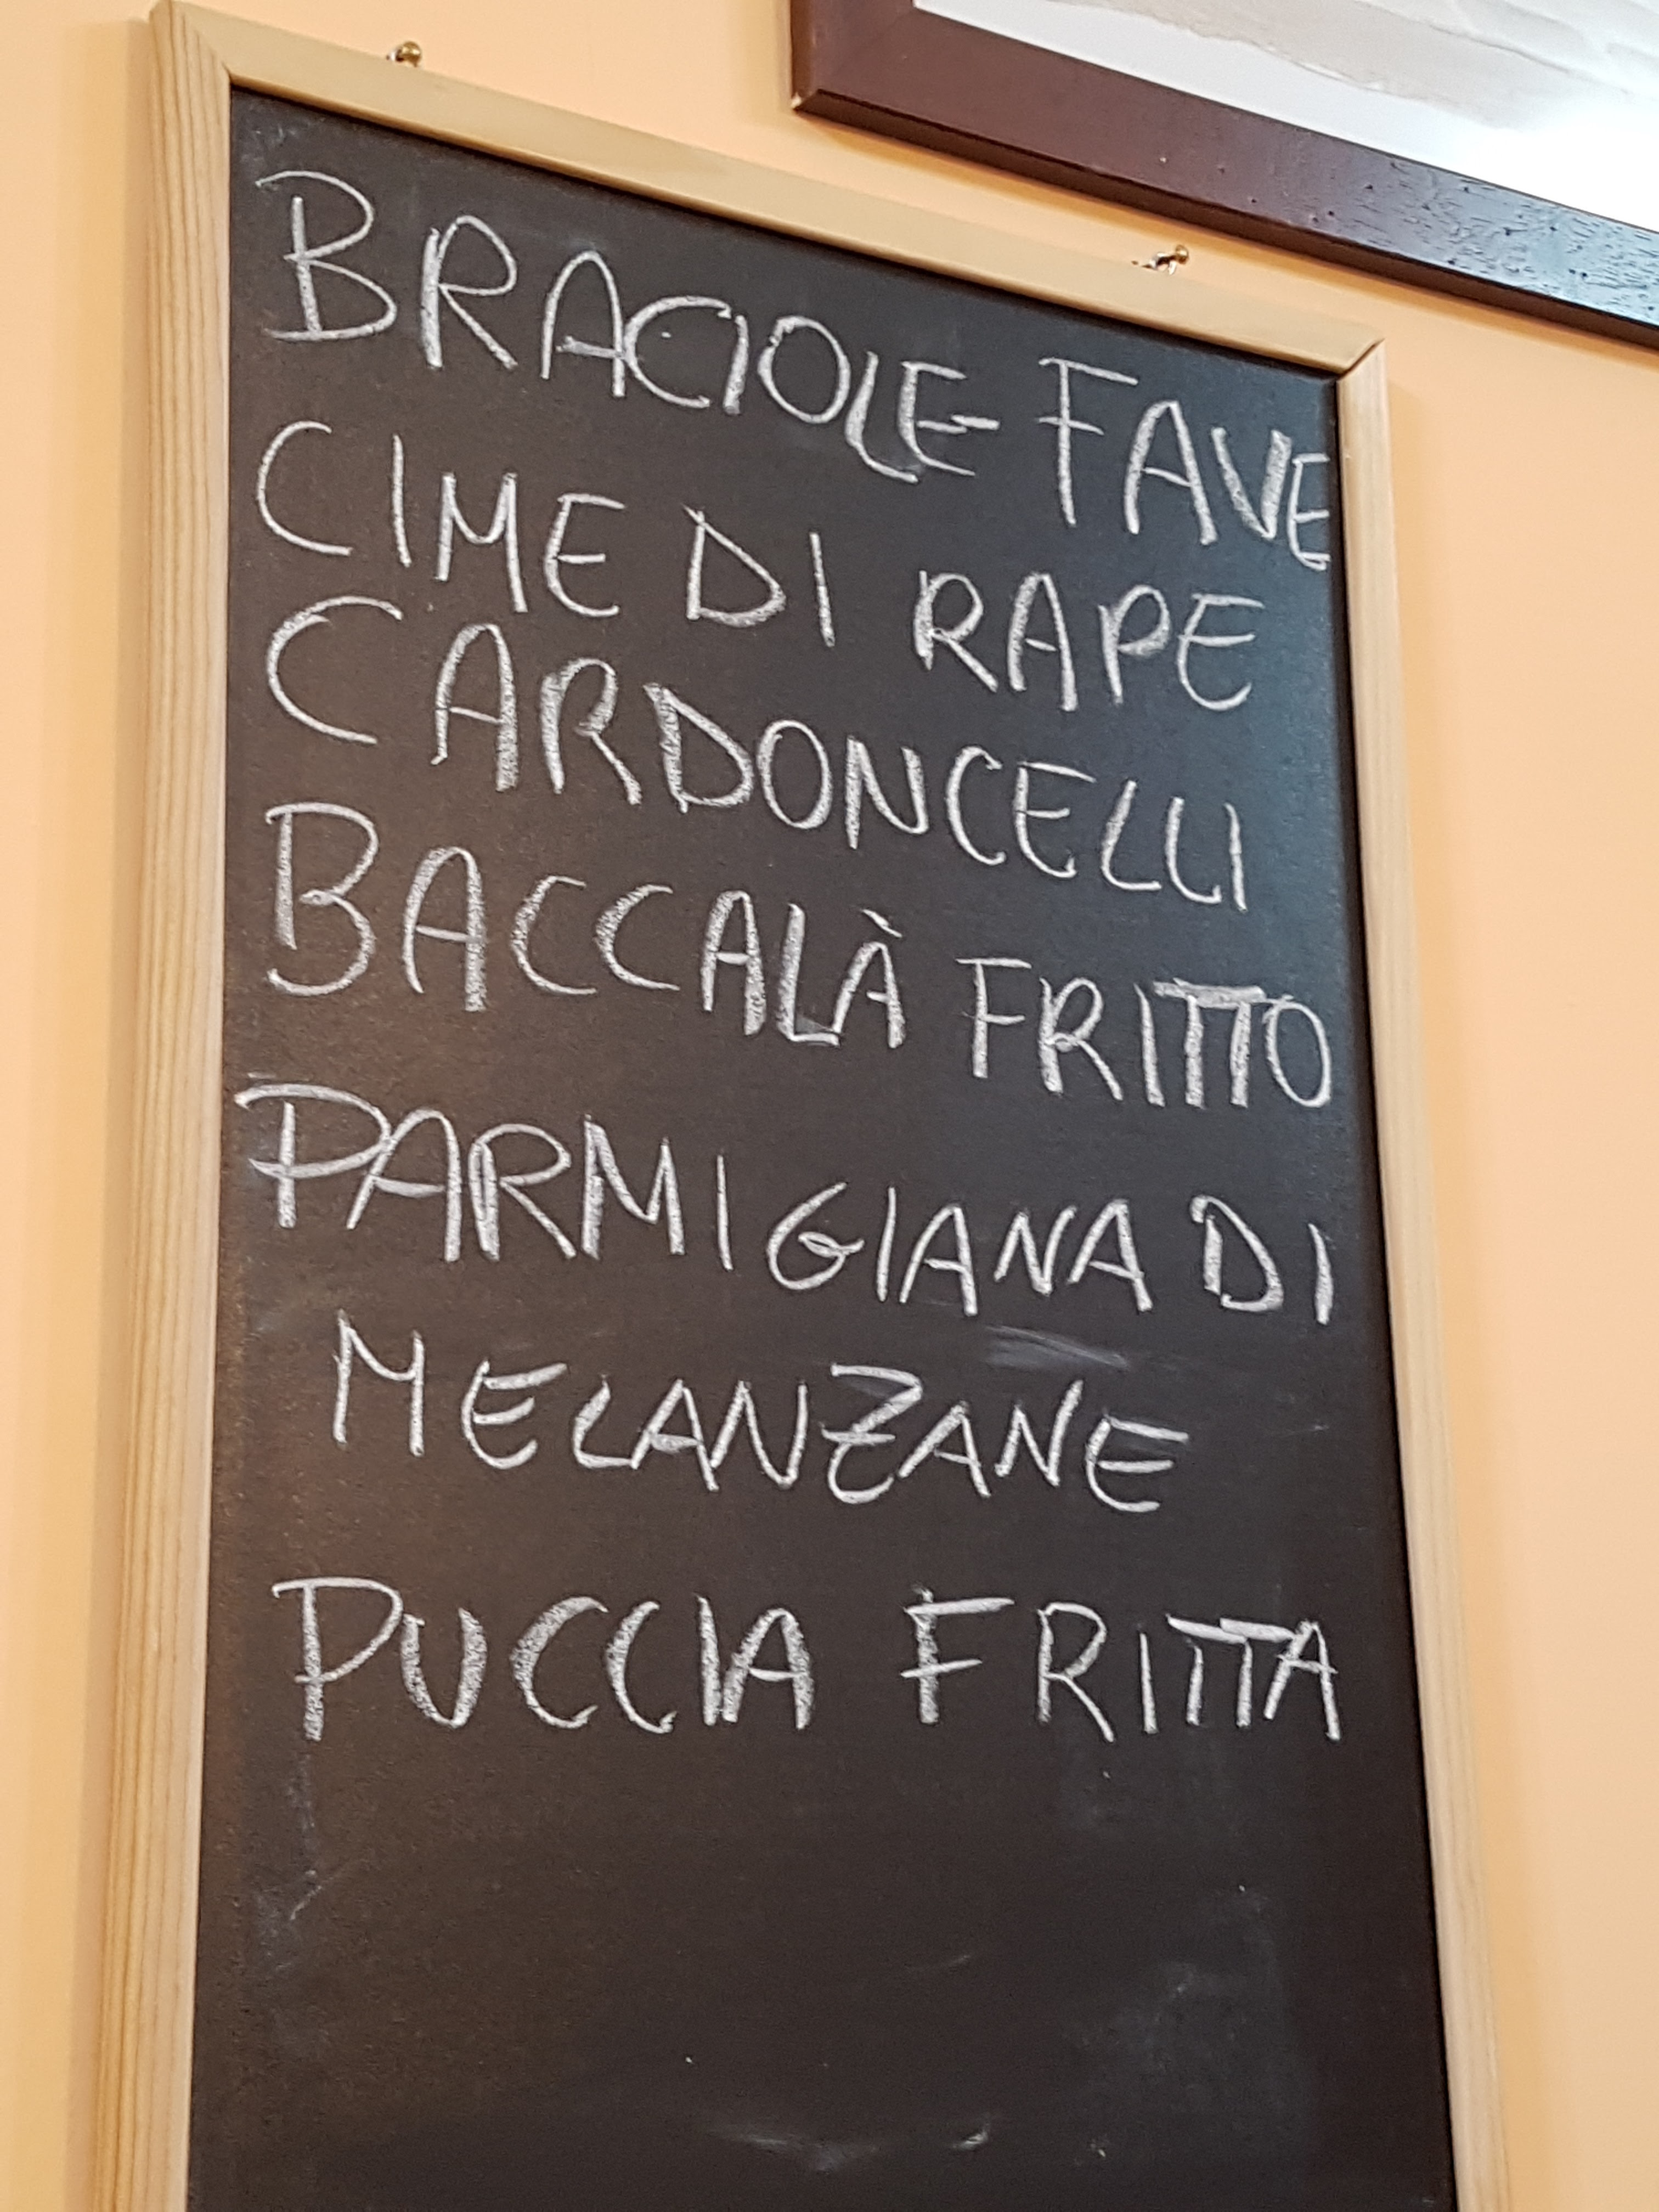 BRACIOLE- FAVE
CIME DI RAPE
CARDONCELLI
BACCALÀ FRITTO
PARMIGIANA DI
MELANZANE
PUCCIA FRITTA